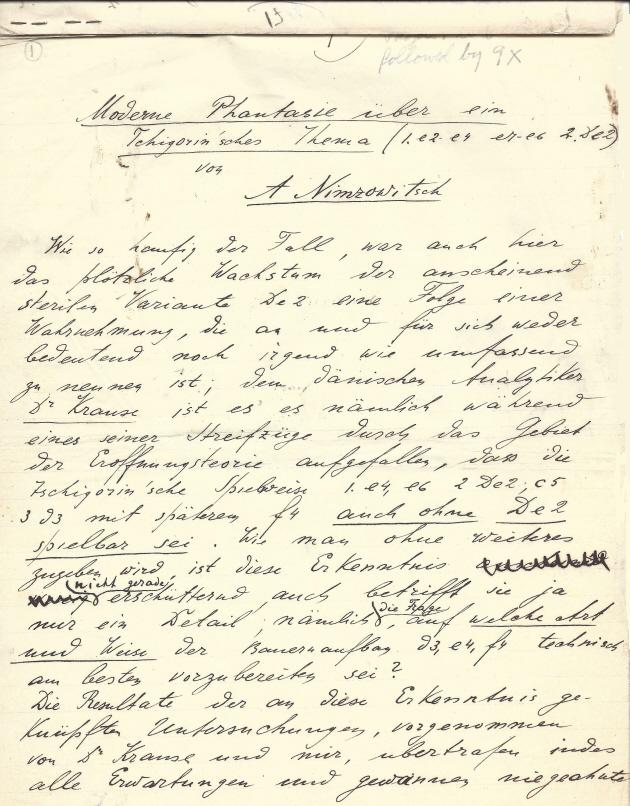 13
①
followed by 9X
Moderne Phantasie über ein
Tchigorin'sches Thema (1. e2-e4 e7-e6 2. De2)
von
A Nimzowitsch
Wie so haufig der Fall, war auch hier
das plötzliche Wachstum der anscheinend
sterilen Variante De2 eine Folge einer
Wahrnehmung, die an und für sich weder
bedeutend noch irgend wie umfassend
zu nennen ist; dem dänischen Analytiker
Dr Krause ist es es nämlich während
eines seiner Streifzüge durch das Gebiet
der Eroffnungsteorie aufgefallen, dass die
Tschigorin'sche Spielweise 1. e4, e6 2 De2, c5
3 d3 mit späterem f4 auch ohne De2
spielbar sei. Wie man ohne weiteres
zugeben wird ist diese Erkenntnis
nicht gerade
erschütternd auch betrifft sie ja
die Frage
nur ein Detail, nämlich, auf welche Art
und Weise der Bauernaufbau d3, e4, f4 technisch
am besten vorzubereiten sei?
Die Resultate der an diese Erkenntnis ge-
knüpften Untersuchungen, vorgenommen
von Dr Krause und mir, übertrafen indes
alle Erwartungen und gewannen niegeahnte